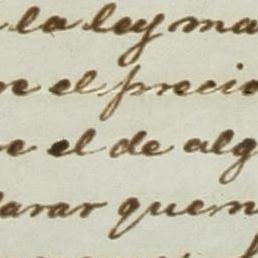 la ley ma
re el precio
re el de alg
larar quem